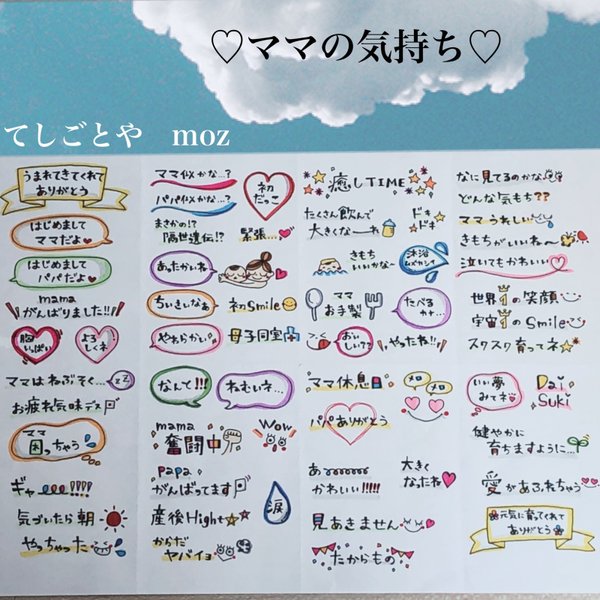 ♡ママの気持ち♡
てしごとや moz
うまれてきてくれて
ありがとう
はじめまして
ママだよ♥
はじめまして
パパだよ♥
mama
がんばりました!!
胸
いっぱい
よろ
しくネ
ママはねぶそく…
zZ
お疲れ気味デス
ママ
困っちゃう
ギャー!!!!
気づいたら朝
やっちゃった
ママ似かな…?
パパ似かな…?
初
だっこ
まさかの!?
隔世遺伝!?
緊張…
あったかいね
ちいさいなぁ
初Smile
やわらかい
母子同室
なんて!!!
ねむいネ…
mama
奮闘中
Wow
papa
がんばってます
産後High☆☆
涙
からだ
ヤバイョ
癒しTIME
たくさん飲んで
大きくなーれ
ドキ
ドキ
きもち
いいかな~
沐浴
ムズカシイ
ママ
お手製
たべる
かナ…
おい
しい??
やったね!!
ママ休息日
メロ
メロ
パパありがとう
あ
かわいい!!!!!
大きく
なったね♥
見あきません
たからもの
なに見てるのかな
どんな気もち??
ママうれしい
きもちがいいね~
泣いてもかわいい
世界1の笑顔
宇宙1のSmile
スクスク育ってネ☆
いい夢
みてネ
Dai
Suki
健やかに
育ちますように…
愛があふれちゃう
元気に育ってくれて
ありがとう